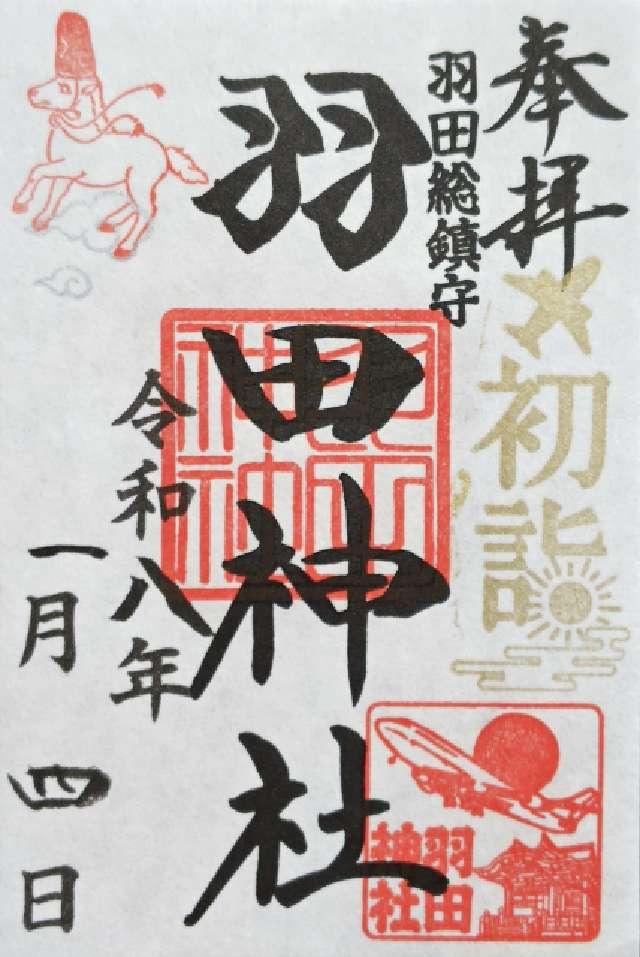 奉拝
羽田総鎮守
初詣
羽田神社
羽田
神社
羽田
神社
令和八年
一月四日